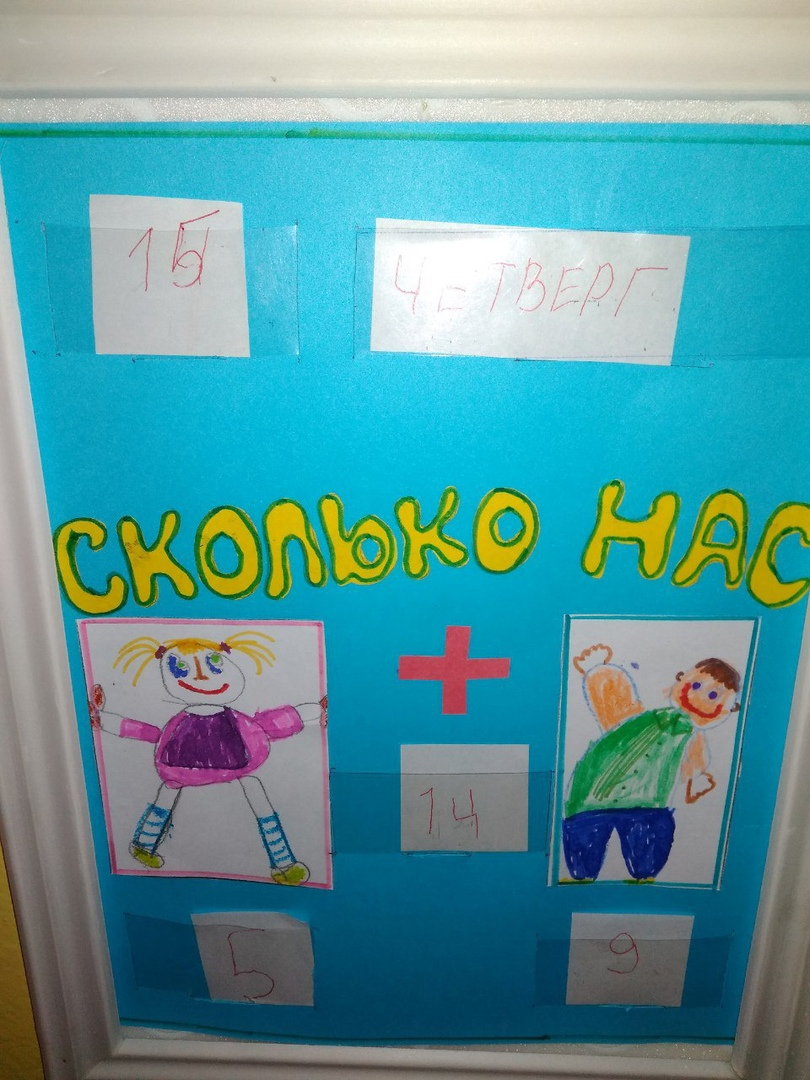 15 ЧЕТВЕРГ
СКОЛЬКО НАС
+
14
5 9